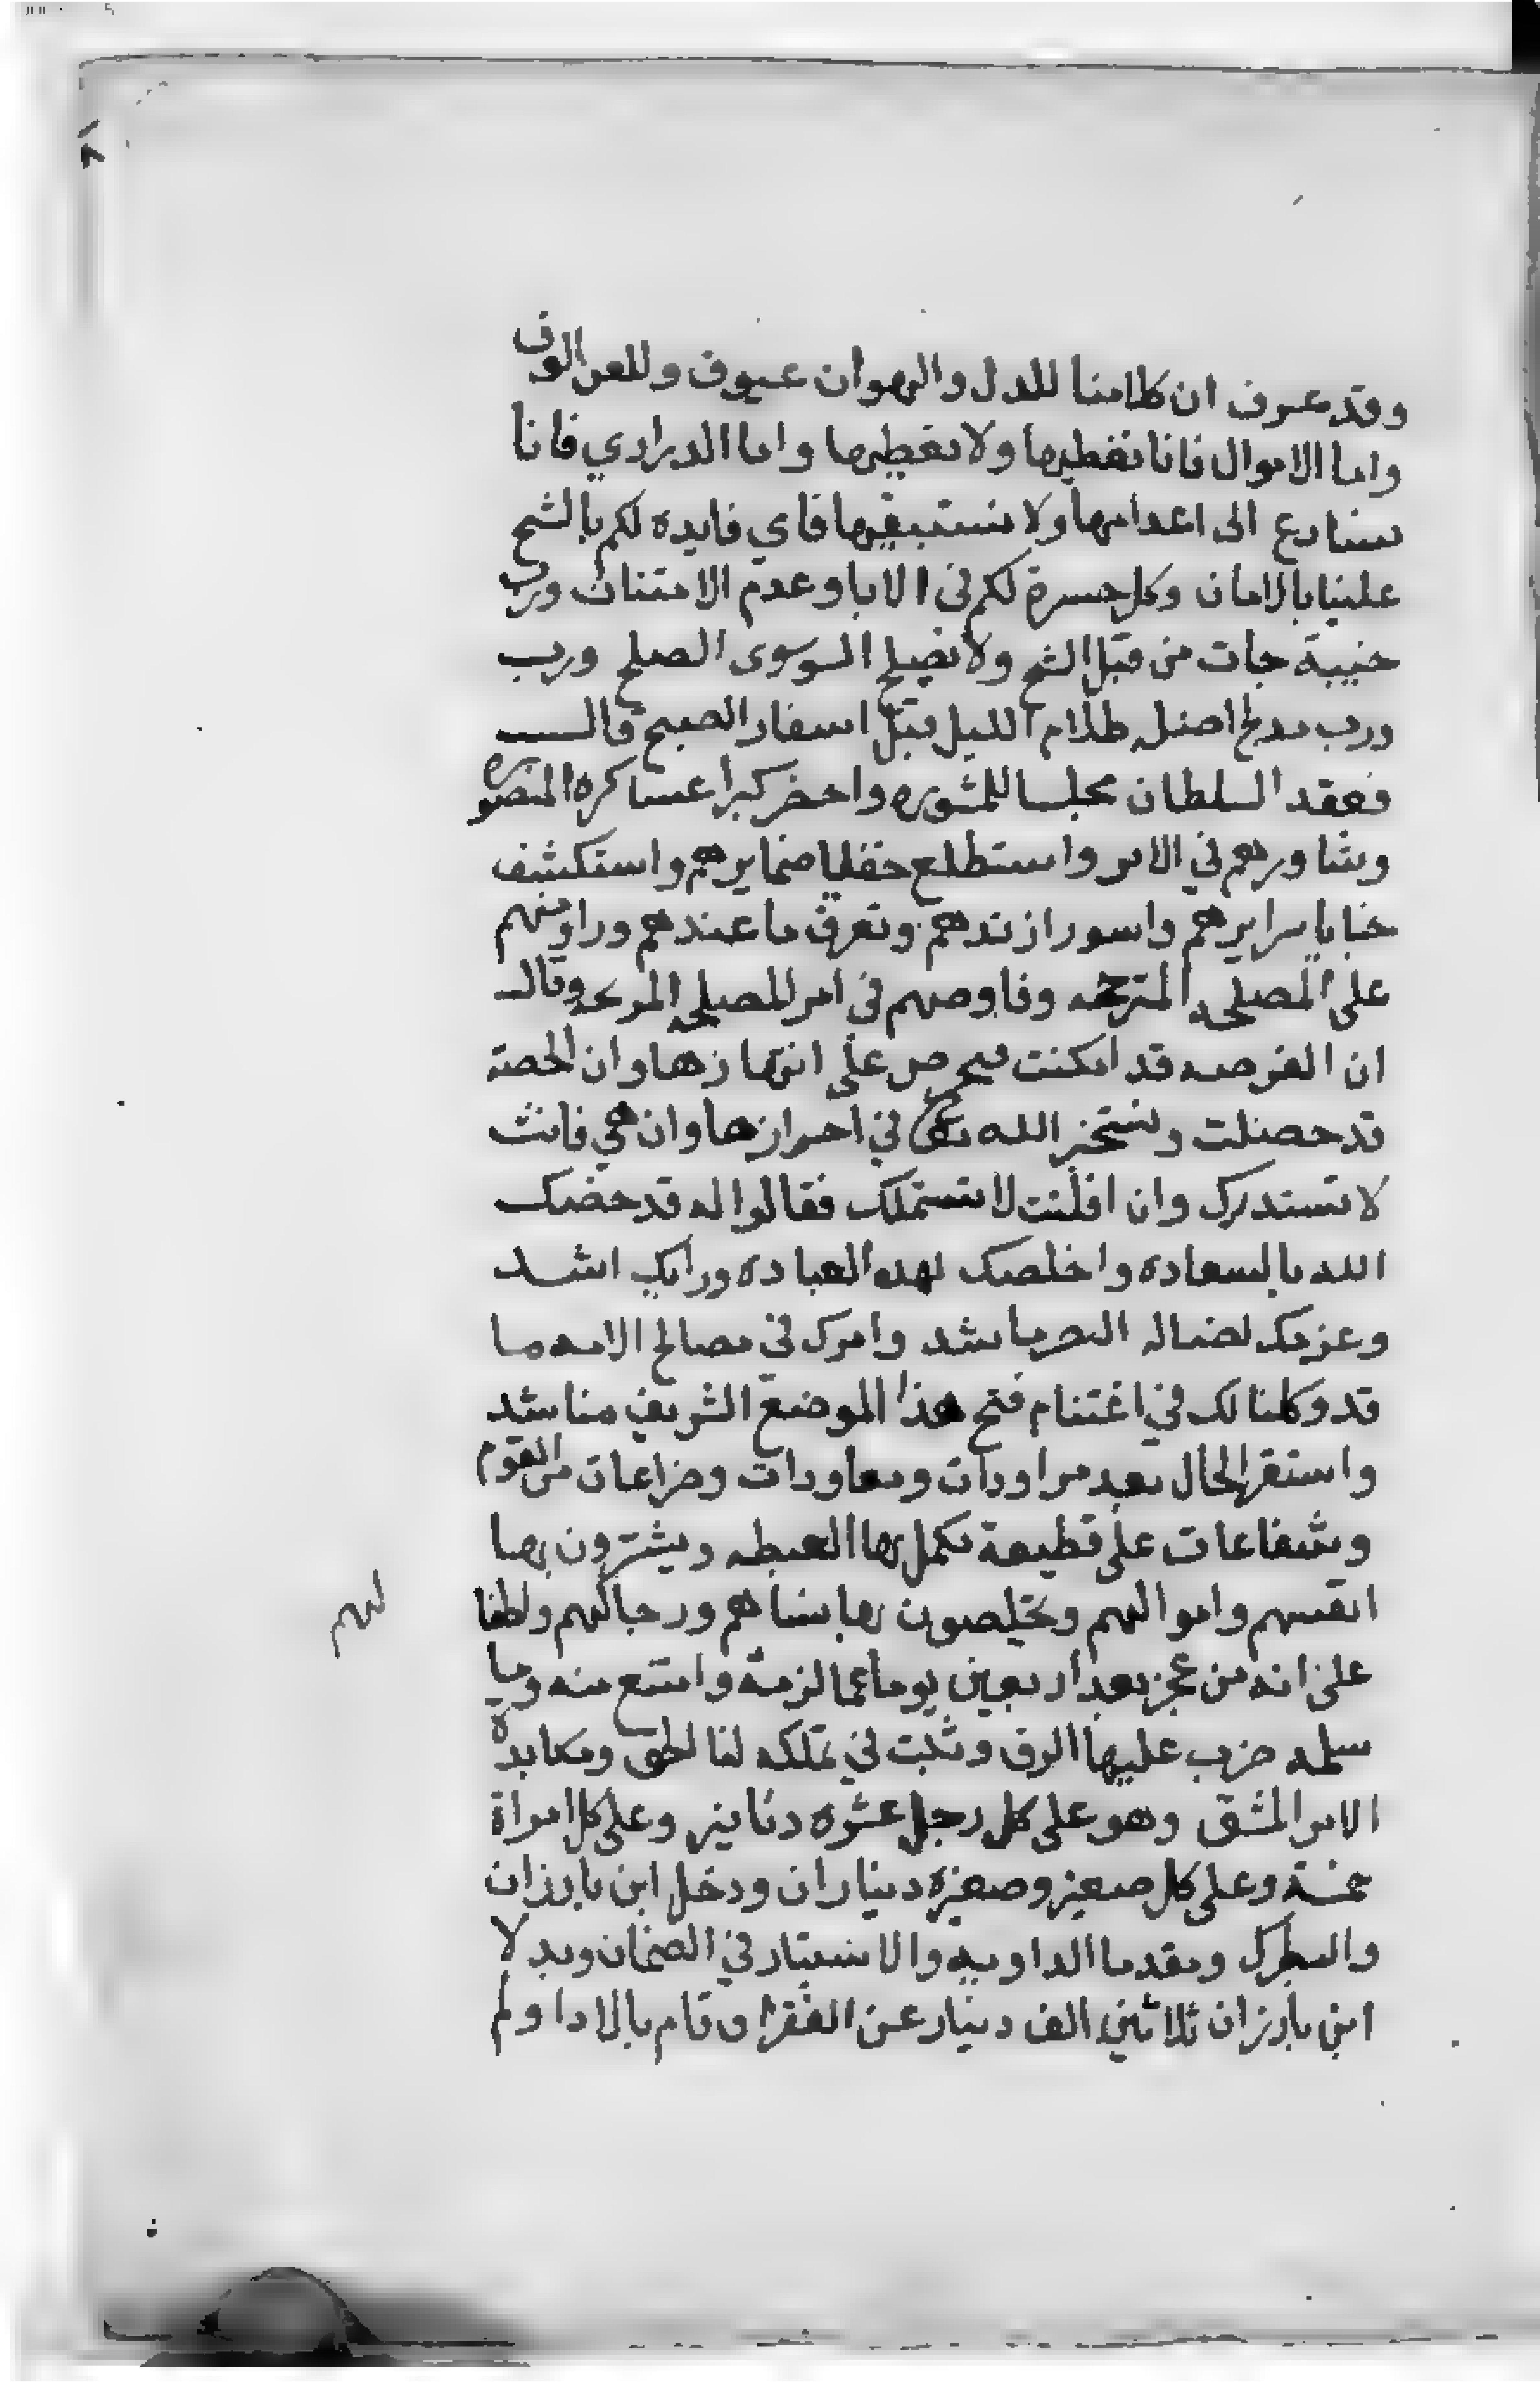 وقد عرف ان كلامنا للدل والهوان عيوف وللعز الوف
واما الاموال فانا نفطيها ولا نعطيها واما الدراري فانا
نسارع الى اعدامها ولا نستبقيها فاي فايده لكم بالشح
علينا بالامان وكل حسرة لكم في الابا وعدم الامتنان ورب
خيبة جات من قبل النجح ولا يصلح السوى سوى الصلح ورب
ورب مدلج اضله ظلام الليل قبل اسفار الصبح قال
فعقد السلطان مجلسا للمشوره واحضر كبرا عساكره المنصوره
وشاورهم في الامر واستطلع خفايا ضمايرهم واستكشف
خبايا سرايرهم واسورا زندهم وتعرف ما عندهم وراوضهم
على المصلحه المترجحه وفاوضهم في امر المصلحه المربحه وقال
ان الفرصه قد امكنت فنحرص على انتهازها وان الحصة
قد حصلت ونستخير الله تعالى في احرازها وان هي فاتت
لا تستدرك وان افلتت لا تستملك فقالوا له قد خصك
الله بالسعاده واخلصك لهذه العباده ورايك اشد
وعزمك لضاله النصر ناشد وامرك في مصالح الامه ما
قد وكلنا لك في اغتنام فتح هذا الموضع الشريف مناشد
واستقر الحال بعد مراودات ومعاودات وضراعات من القوم
وشفاعات على قطيعة تكمل بها الغبطه ويشترون بها
انفسهم واموالهم ويخلصون بها نساهم ورجالهم واطفا
لهم
على انه من عجز بعد اربعين يوما عما لزمه وامتنع منه وما
سلمه ضرب عليها الرق وثبت في تملكه لنا الحق ومكابدة
الامر المشق وهو على كل رجل عشره دنانير وعلى كل امراة
خمسة وعلى كل صغير وصغيره ديناران ودخل ابن بارزان
والبطرك ومقدما الداويه والاسبتار في الضمان وبدل لا
ابن بارزان ثلاثين الف دينار عن الفقرا وقام بالادا ولم